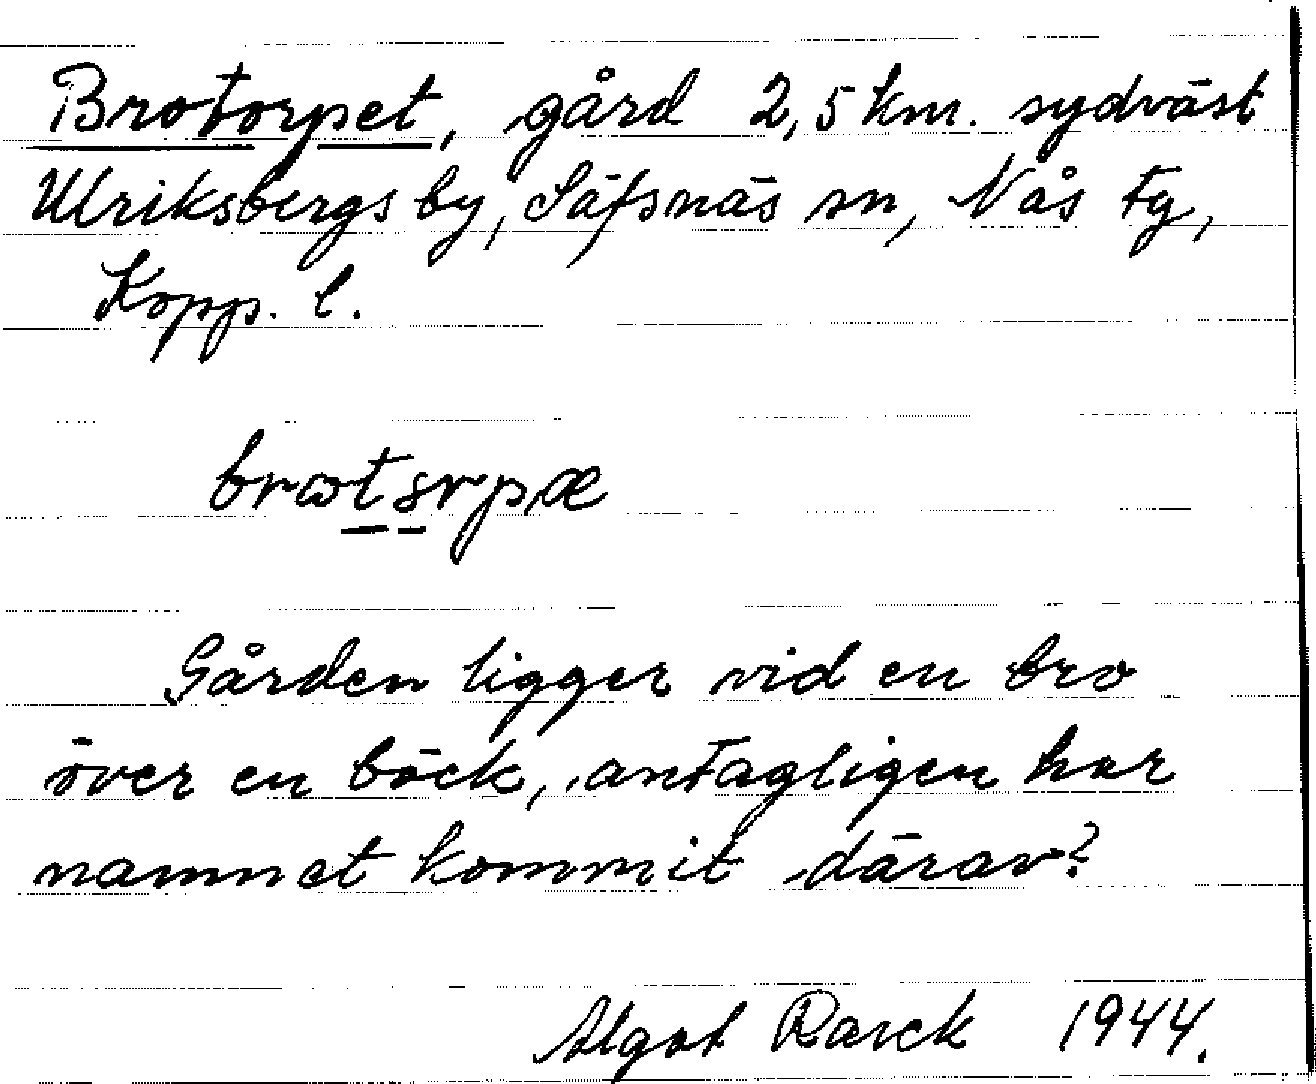 Brotorpet, gård 2,5 km. sydväst
Ulriksbergs by, Säfsnäs sn, Nås tg,
Kopp. l.
Gården ligger vid en bro
över en bäck, antagligen har
namnet kommit därav?
Algot Rarck 1944.